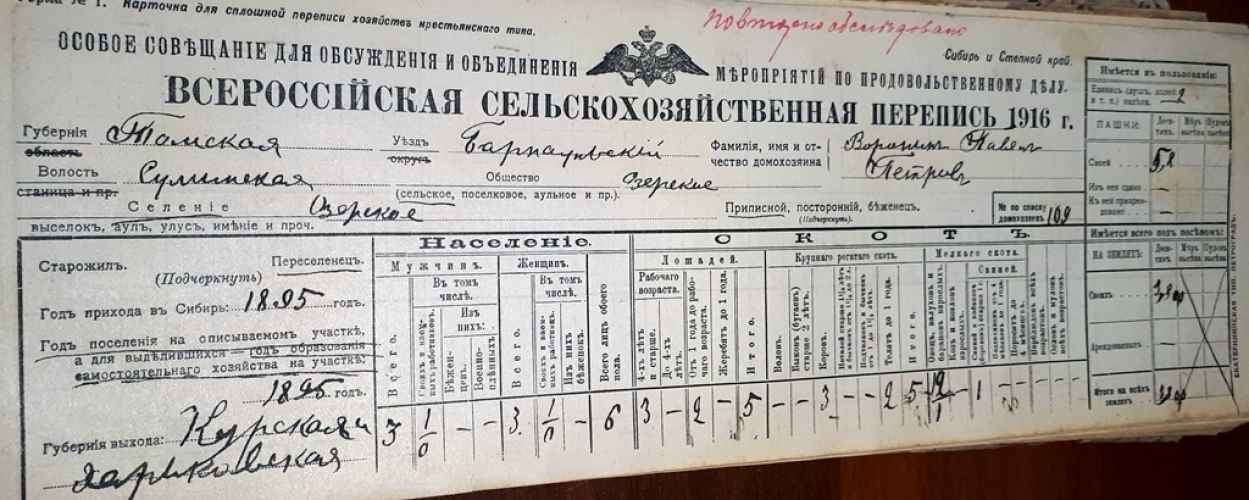 Карточка для сплошной переписи хозяйствъ крестьянскаго типа.
Повторно обследовано
Сибирь и Степной край.
ОСОБОЕ СОВѢЩАНІЕ ДЛЯ ОБСУЖДЕНІЯ И ОБЪЕДИНЕНІЯ МѢРОПРІЯТІЙ ПО ПРОДОВОЛЬСТВЕННОМУ ДѢЛУ.
ВСЕРОССІЙСКАЯ СЕЛЬСКОХОЗЯЙСТВЕННАЯ ПЕРЕПИСЬ 1916 г.
Губернія Томская Уѣздъ Барнаульскій Фамилія, имя и от- Воронинъ Павелъ
область округъ чество домохозяина Петровъ
Волость Сулинская Общество Озерское
станица и пр. (сельское, поселковое, аульное и пр.)
Селеніе Озерское Приписной, посторонній, бѣженецъ. № по списку 109
выселокъ, аулъ, улусъ, имѣніе и проч. (Подчеркнуть). домохозяевъ
Старожилъ. Переселенецъ.
(Подчеркнуть)
Годъ прихода въ Сибирь: 1895 годъ.
Годъ поселенія на описываемомъ участкѣ,
а для выдѣлившихся — годъ образованія
самостоятельнаго хозяйства на участкѣ:
1895 годъ.
Губернія выхода: Курская и
Харьковская
Населеніе.
Мужчинъ. Женщинъ.
Въ томъ числѣ. Въ томъ числѣ.
Изъ нихъ:
Всего.
Бѣжен-цевъ.
Военно-плѣнныхъ
Всего.
Изъ нихъ бѣженокъ.
Всего лицъ обоего пола.
3 1/0 — — 3 1/0 — 6
СКОТЪ
Лошадей. Крупнаго рогатаго скота. Мелкаго скота.
Рабочаго возраста. Свиней.
4-хъ лѣтъ и старше.
До 4-хъ лѣтъ.
Отъ 1 года до рабочаго возраста.
Жеребятъ до 1 года.
Итого.
Воловъ.
Быковъ (бугаевъ) старше 2 лѣтъ.
Коровъ.
Телятъ до 1 года.
Итого.
3 — 2 — 5 — — 3 — — 2 5 12/1 — 1 — — — —
Имѣется въ пользованіи:
2
ПАШНИ: Деся-тинъ.
Своей 5,8
Изъ ней сдано —
Имѣется всего подъ посѣвомъ:
НА ЗЕМЛЯХЪ:
Своихъ
Арендованныхъ
Итого на всѣхъ земляхъ